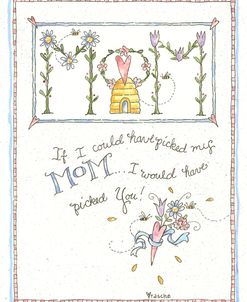 MOM
If I could have picked my
MOM... I would have
picked You!
Wrasche